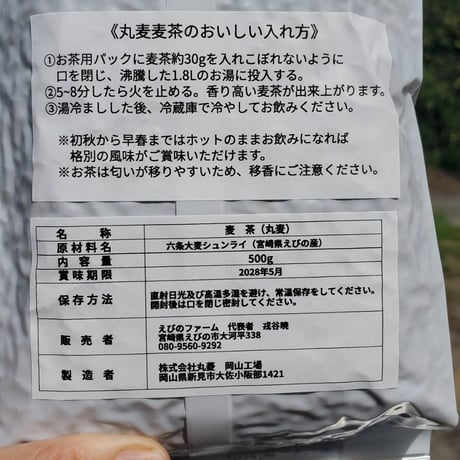 《丸麦麦茶のおいしい入れ方》
①お茶用パックに麦茶約30gを入れこぼれないように
口を閉じ、沸騰した1.8Lのお湯に投入する。
②5~8分したら火を止める。香り高い麦茶が出来上がります。
③湯冷ましした後、冷蔵庫で冷やしてお飲みください。
※初秋から早春まではホットのままお飲みになれば
格別の風味がご賞味いただけます。
※お茶は匂いが移りやすいため、移香にご注意ください。
名称 麦茶(丸麦)
原材料名 六条大麦シュンライ(宮崎県えびの産)
内容量 500g
賞味期限 2028年5月
保存方法 直射日光及び高温多湿を避け、常温保存をしてください。
開封後は口を閉じ密封してください。
販売者 えびのファーム 代表者 戎谷暁
宮崎県えびの市大河平338
080-9560-9292
製造者 株式会社丸菱 岡山工場
岡山県新見市大佐小阪部1421